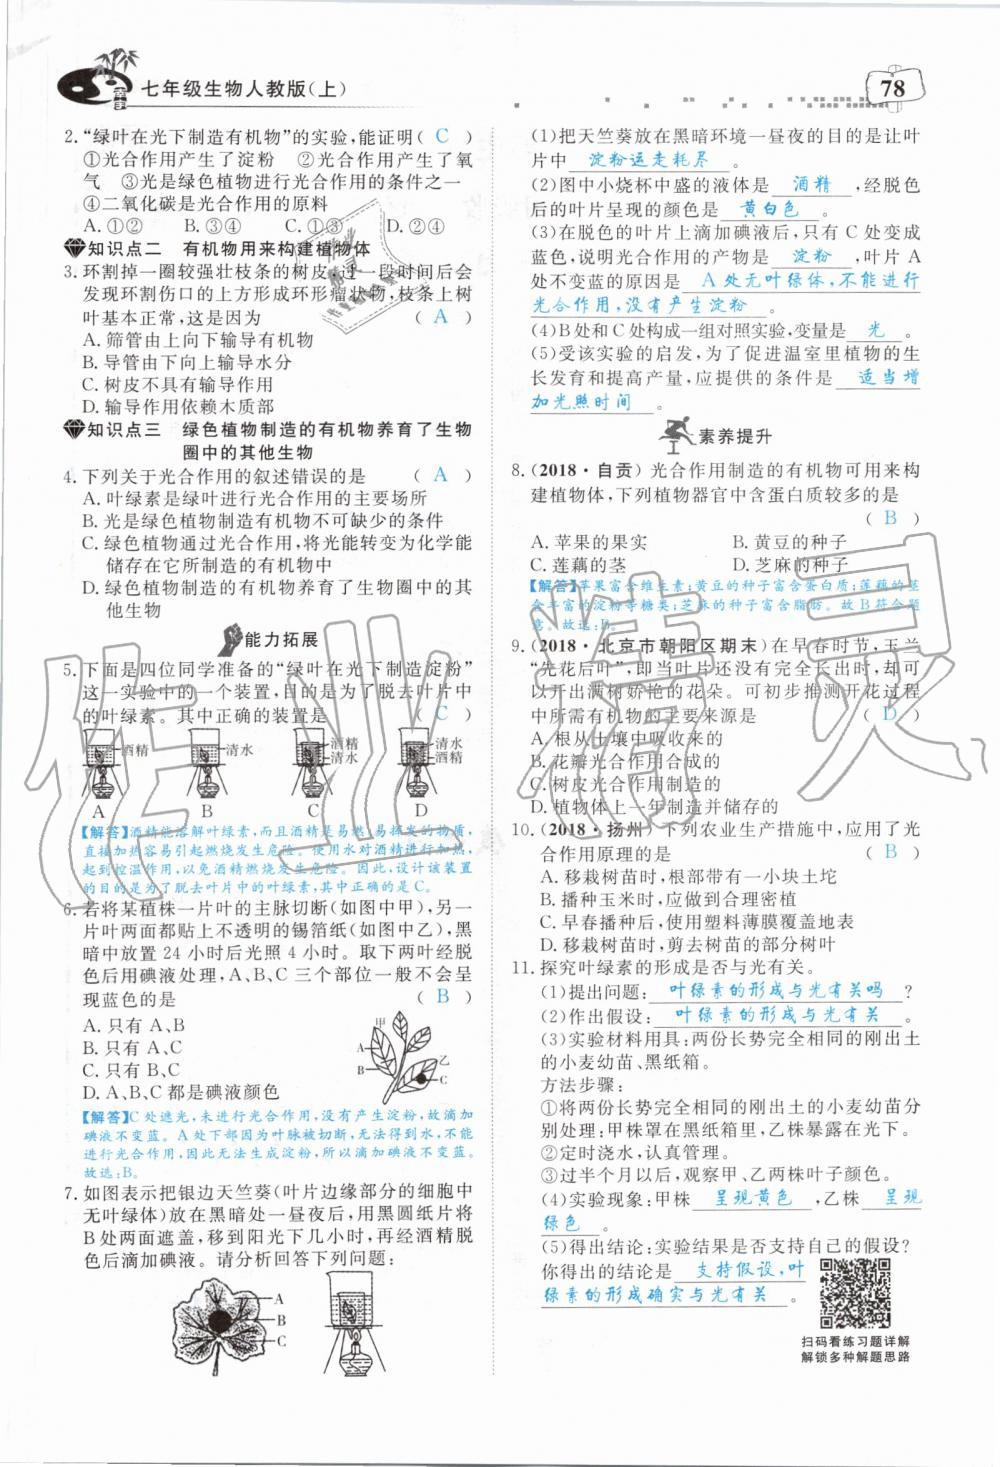 七年级生物人教版(上)
78
2.“绿叶在光下制造有机物”的实验,能证明( C )
①光合作用产生了淀粉 ②光合作用产生了氧
气 ③光是绿色植物进行光合作用的条件之一
④二氧化碳是光合作用的原料
A.①② B.③④ C.①③ D.②④
知识点二 有机物用来构建植物体
3.环割掉一圈较强壮枝条的树皮,过一段时间后会
发现环割伤口的上方形成环形瘤状物,枝条上树
叶基本正常,这是因为 ( A )
A.筛管由上向下输导有机物
B.导管由下向上输导水分
C.树皮不具有输导作用
D.输导作用依赖木质部
知识点三 绿色植物制造的有机物养育了生物
圈中的其他生物
4.下列关于光合作用的叙述错误的是 ( A )
A.叶绿素是绿叶进行光合作用的主要场所
B.光是绿色植物制造有机物不可缺少的条件
C.绿色植物通过光合作用,将光能转变为化学能
储存在它所制造的有机物中
D.绿色植物制造的有机物养育了生物圈中的其
他生物
能力拓展
5.下面是四位同学准备的“绿叶在光下制造淀粉”
这一实验中的一个装置,目的是为了脱去叶片中
的叶绿素。其中正确的装置是 ( C )
酒精 清水 酒精 清水 清水 酒精
A B C D
【解答】酒精能溶解叶绿素,而且酒精是易燃、易挥发的物质,
直接加热容易引起燃烧发生危险。使用水对酒精进行加热,
起到控温作用,以免酒精燃烧发生危险。因此,设计该装置
的目的是为了脱去叶片中的叶绿素,其中正确的是C。
6.若将某植株一片叶的主脉切断(如图中甲),另一
片叶两面都贴上不透明的锡箔纸(如图中乙),黑
暗中放置24小时后光照4小时。取下两叶经脱
色后用碘液处理,A、B、C三个部位一般不会呈
现蓝色的是 ( B )
A.只有A、B
B.只有A、C
C.只有B、C
D.A、B、C都是碘液颜色
甲
A
B
乙
C
【解答】C处遮光,未进行光合作用,没有产生淀粉,故滴加
碘液不变蓝。A处下部因为叶脉被切断,无法得到水,不能
进行光合作用,因此无法生成淀粉,所以滴加碘液不变蓝。
故选:B。
7.如图表示把银边天竺葵(叶片边缘部分的细胞中
无叶绿体)放在黑暗处一昼夜后,用黑圆纸片将
B处两面遮盖,移到阳光下几小时,再经酒精脱
色后滴加碘液。请分析回答下列问题:
A
B
C
(1)把天竺葵放在黑暗环境一昼夜的目的是让叶
片中 淀粉运走耗尽 。
(2)图中小烧杯中盛的液体是 酒精 ,经脱色
后的叶片呈现的颜色是 黄白色 。
(3)在脱色的叶片上滴加碘液后,只有C处变成
蓝色,说明光合作用的产物是 淀粉 ,叶片A
处不变蓝的原因是 A处无叶绿体,不能进行
光合作用,没有产生淀粉 。
(4)B处和C处构成一组对照实验,变量是 光 。
(5)受该实验的启发,为了促进温室里植物的生
长发育和提高产量,应提供的条件是 适当增
加光照时间 。
素养提升
8.(2018·自贡)光合作用制造的有机物可用来构
建植物体,下列植物器官中含蛋白质较多的是
( B )
A.苹果的果实 B.黄豆的种子
C.莲藕的茎 D.芝麻的种子
【解答】苹果富含维生素;黄豆的种子富含蛋白质;莲藕的茎
含丰富的淀粉等糖类;芝麻的种子富含脂肪。故B符合题
意。故选:B。
9.(2018·北京市朝阳区期末)在早春时节,玉兰
“先花后叶”,即当叶片还没有完全长出时,却可
以开出满树娇艳的花朵。可初步推测开花过程
中所需有机物的主要来源是 ( D )
A.根从土壤中吸收来的
B.花瓣光合作用合成的
C.树皮光合作用制造的
D.植物体上一年制造并储存的
10.(2018·扬州)下列农业生产措施中,应用了光
合作用原理的是 ( B )
A.移栽树苗时,根部带有一小块土坨
B.播种玉米时,应做到合理密植
C.早春播种后,使用塑料薄膜覆盖地表
D.移栽树苗时,剪去树苗的部分树叶
11.探究叶绿素的形成是否与光有关。
(1)提出问题: 叶绿素的形成与光有关吗 ?
(2)作出假设: 叶绿素的形成与光有关 。
(3)实验材料用具:两份长势完全相同的刚出土
的小麦幼苗、黑纸箱。
方法步骤:
①将两份长势完全相同的刚出土的小麦幼苗分
别处理:甲株罩在黑纸箱里,乙株暴露在光下。
②定时浇水,认真管理。
③过半个月以后,观察甲、乙两株叶子颜色。
(4)实验现象:甲株 呈现黄色 ,乙株 呈现
绿色 。
(5)得出结论:实验结果是否支持自己的假设?
你得出的结论是 支持假设,叶
绿素的形成确实与光有关 。
扫码看练习题详解
解锁多种解题思路
作业精灵